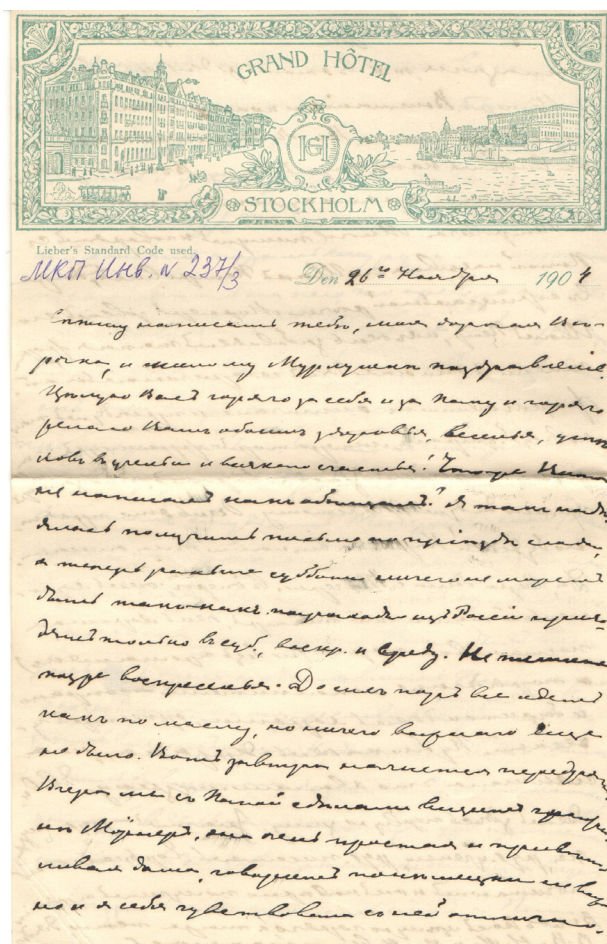 GRAND HÔTEL
GH
STOCKHOLM
Lieber's Standard Code used.
МКП ИНВ. N 237/3
Den 26го Ноября 1904
Спѣшу написать тебѣ, моя дорогая Вѣ-
рочка, и милому поздравленіе.
Цѣлую Васъ горячо за себя и за Папу и горячо
желаю Вамъ обоимъ здоровья, веселья, успѣ-
ховъ въ ученьи и всякаго счастья! Что же
не написалъ какъ обѣщалъ? Я такъ надѣ-
ялась получить письмо по пріѣздѣ сюда,
а теперь раньше субботы ничего не можетъ
быть такъ какъ изъ Россіи прихо-
дятъ только въ суб., воскр. и среду. Не
позже воскресенья. До сихъ поръ все идетъ
какъ по маслу, но ничего еще
не было. Вотъ завтра начнется
Вчера мы съ Папой сдѣлали визитъ графи-
нѣ Мёрнеръ, она очень простая и привѣт-
ливая дама, говоритъ по нѣмецки
но и я себя чувствовала съ ней отлично.